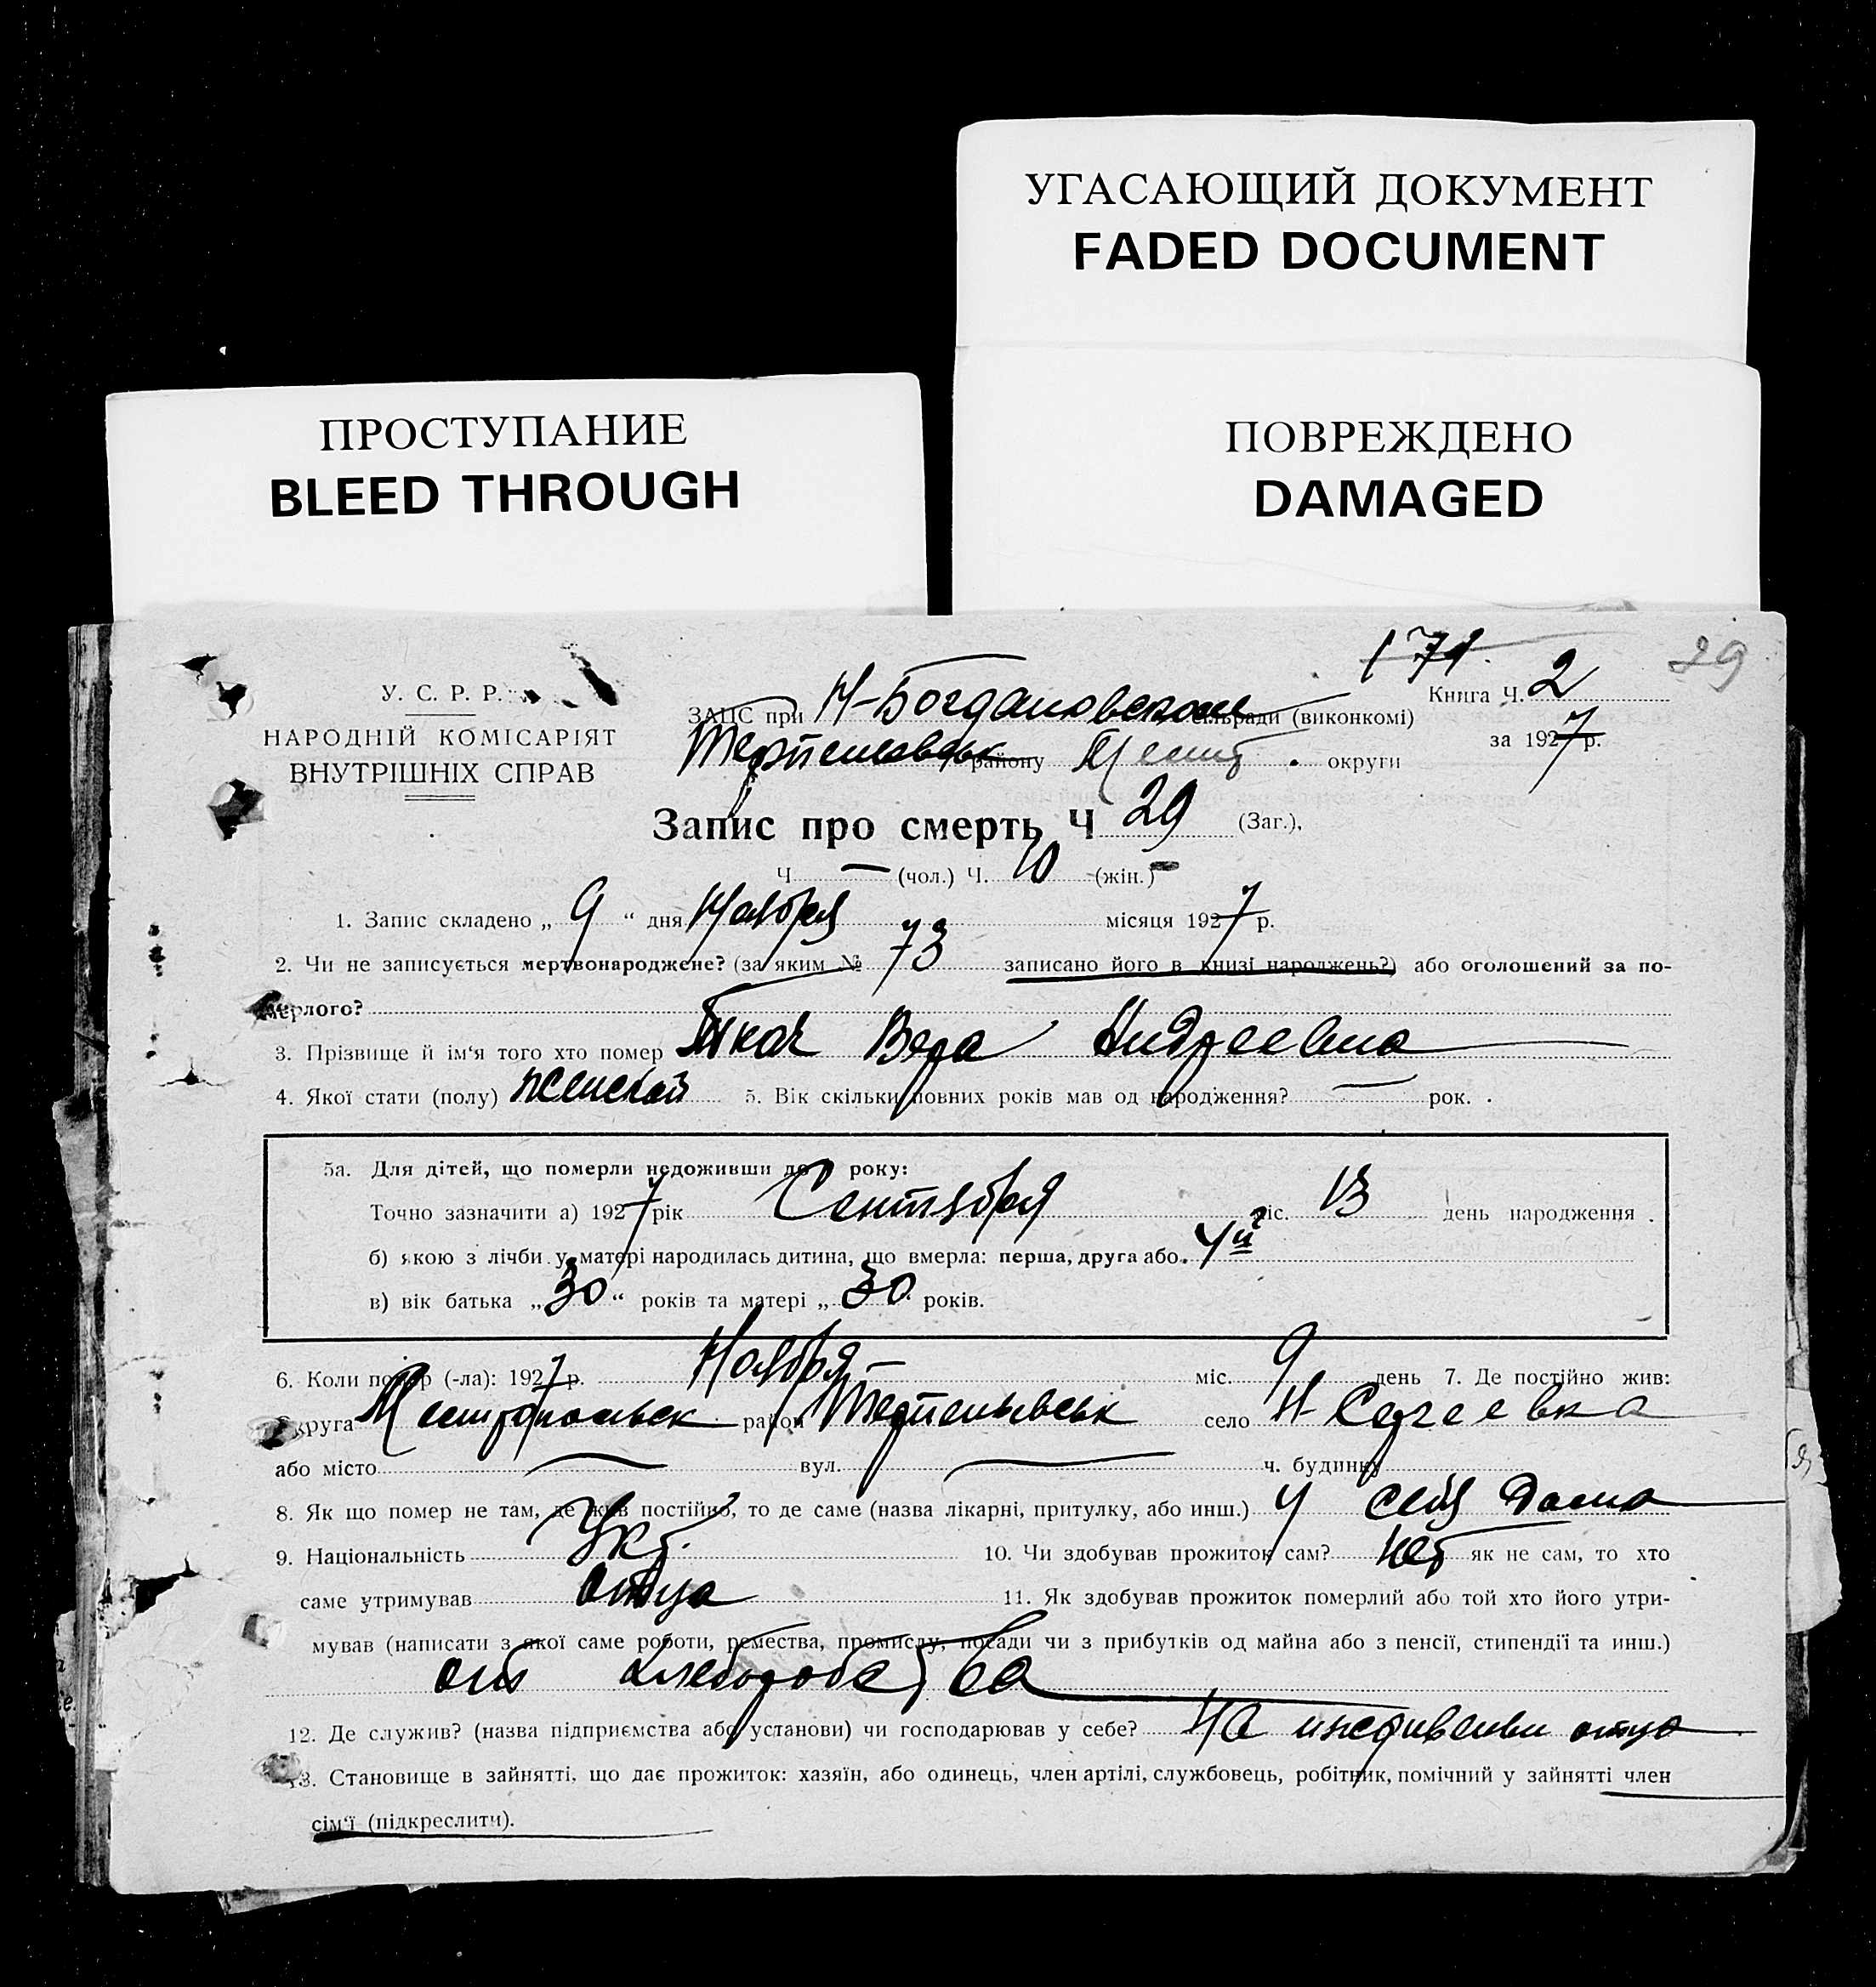 УГАСАЮЩИЙ ДОКУМЕНТ
FADED DOCUMENT
ПРОСТУПАНИЕ
BLEED THROUGH
ПОВРЕЖДЕНО
DAMAGED
171.
29
У. С. Р. Р.
НАРОДНІЙ КОМІСАРІЯТ
ВНУТРІШНІХ СПРАВ
Книга Ч. 2
за 1927 р.
ЗАЦС при Н-Богдановском сільради (виконкомі)
Терпеньевськ району округи
Запис про смерть Ч 29 (Заг.),
Ч. — (чол.) Ч. 10 (жін.)
1. Запис складено „ 9 “ дня Ноября місяця 1927 р.
2. Чи не записується мертвонароджене? (за яким № 73 записано його в книзі народжень?) або оголошений за по-
мерлого?
3. Прізвище й ім‘я того хто помер Ткач Вера Андреевна
4. Якої стати (полу) женской 5. Вік скільки повних років мав од народження? — рок.
5а. Для дітей, що померли недоживши до року:
Точно зазначити а) 1927 рік Сентября міс. 13 день народження.
б) якою з лічби у матері народилась дитина, що вмерла: перша, друга або 4й
в) вік батька „ 30 “ років та матері „ 30 років.
6. Коли помер (-ла): 1927 р. Ноября міс. 9 день 7. Де постійно жив:
округа Мелитопольск район Терпеньевськ село Н-Сергеевка
або місто — вул. — ч. будинку
8. Як що помер не там, де жив постійно, то де саме (назва лікарні, притулку, або инш.) У себя дома
9. Національність Укр. 10. Чи здобував прожиток сам? нет як не сам, то хто
саме утримував отца 11. Як здобував прожиток померлий або той хто його утри-
мував (написати з якої саме роботи, ремества, промислу, посади чи з прибутків од майна або з пенсії, стипендії та инш.)
от хлеборобства
12. Де служив? (назва підприємства або установи) чи господарював у себе? На иждивении отца
13. Становище в зайнятті, що дає прожиток: хазяїн, або одинець, член артілі, службовець, робітник, помічний у зайнятті член
сім‘ї (підкреслити).